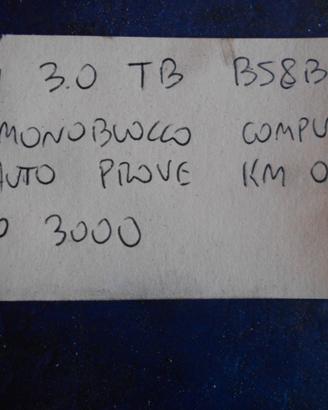 3.0 TB B58B
MONOBLOCCO COMPU
AUTO PROVE KM 0
3000